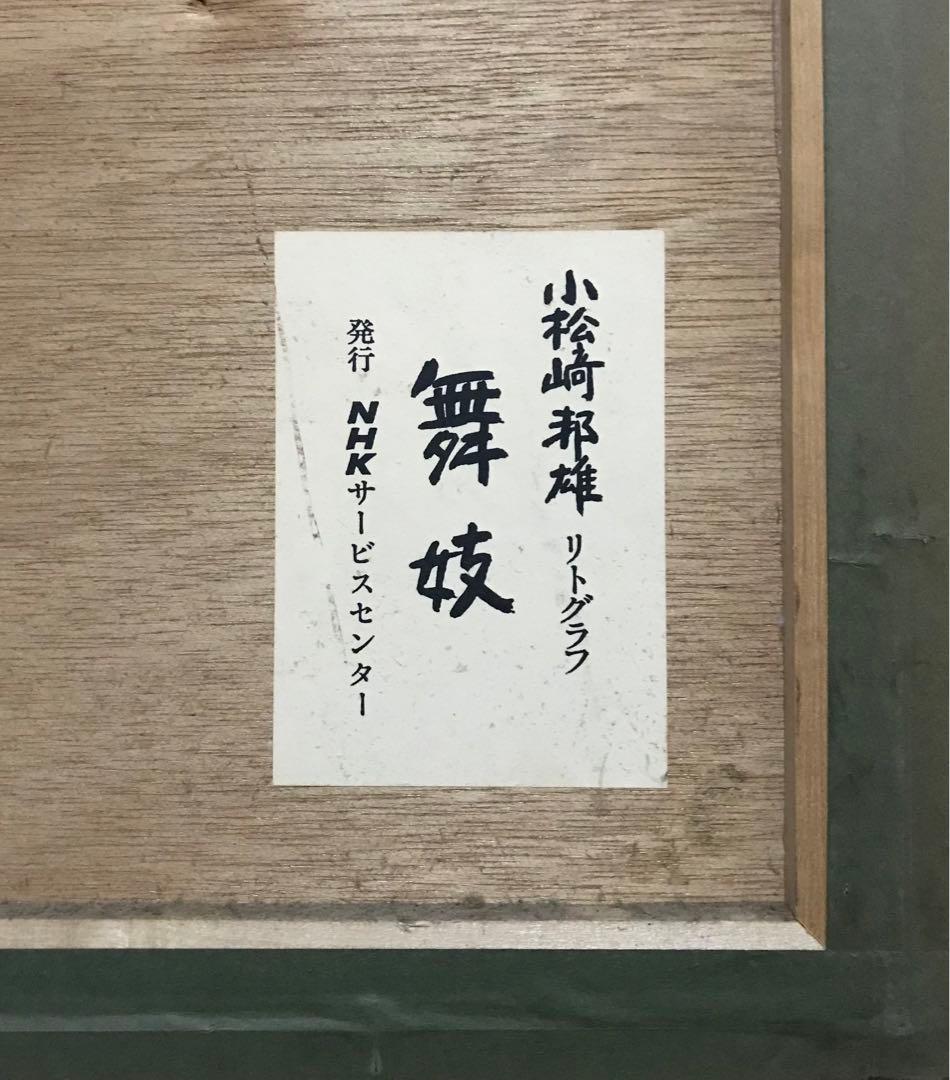 小松﨑邦雄 リトグラフ
舞妓
発行 NHKサービスセンター